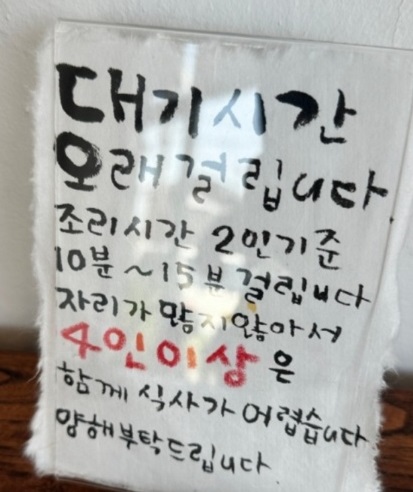 대기시간
오래걸립니다
조리시간 2인기준
10분~15분걸립니다
자리가 많지않아서
4인이상은
함께 식사가 어렵습니다
양해부탁드립니다